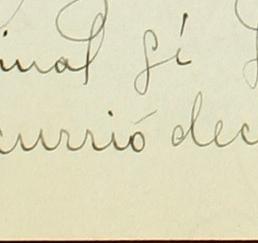 inal gí
currió dec